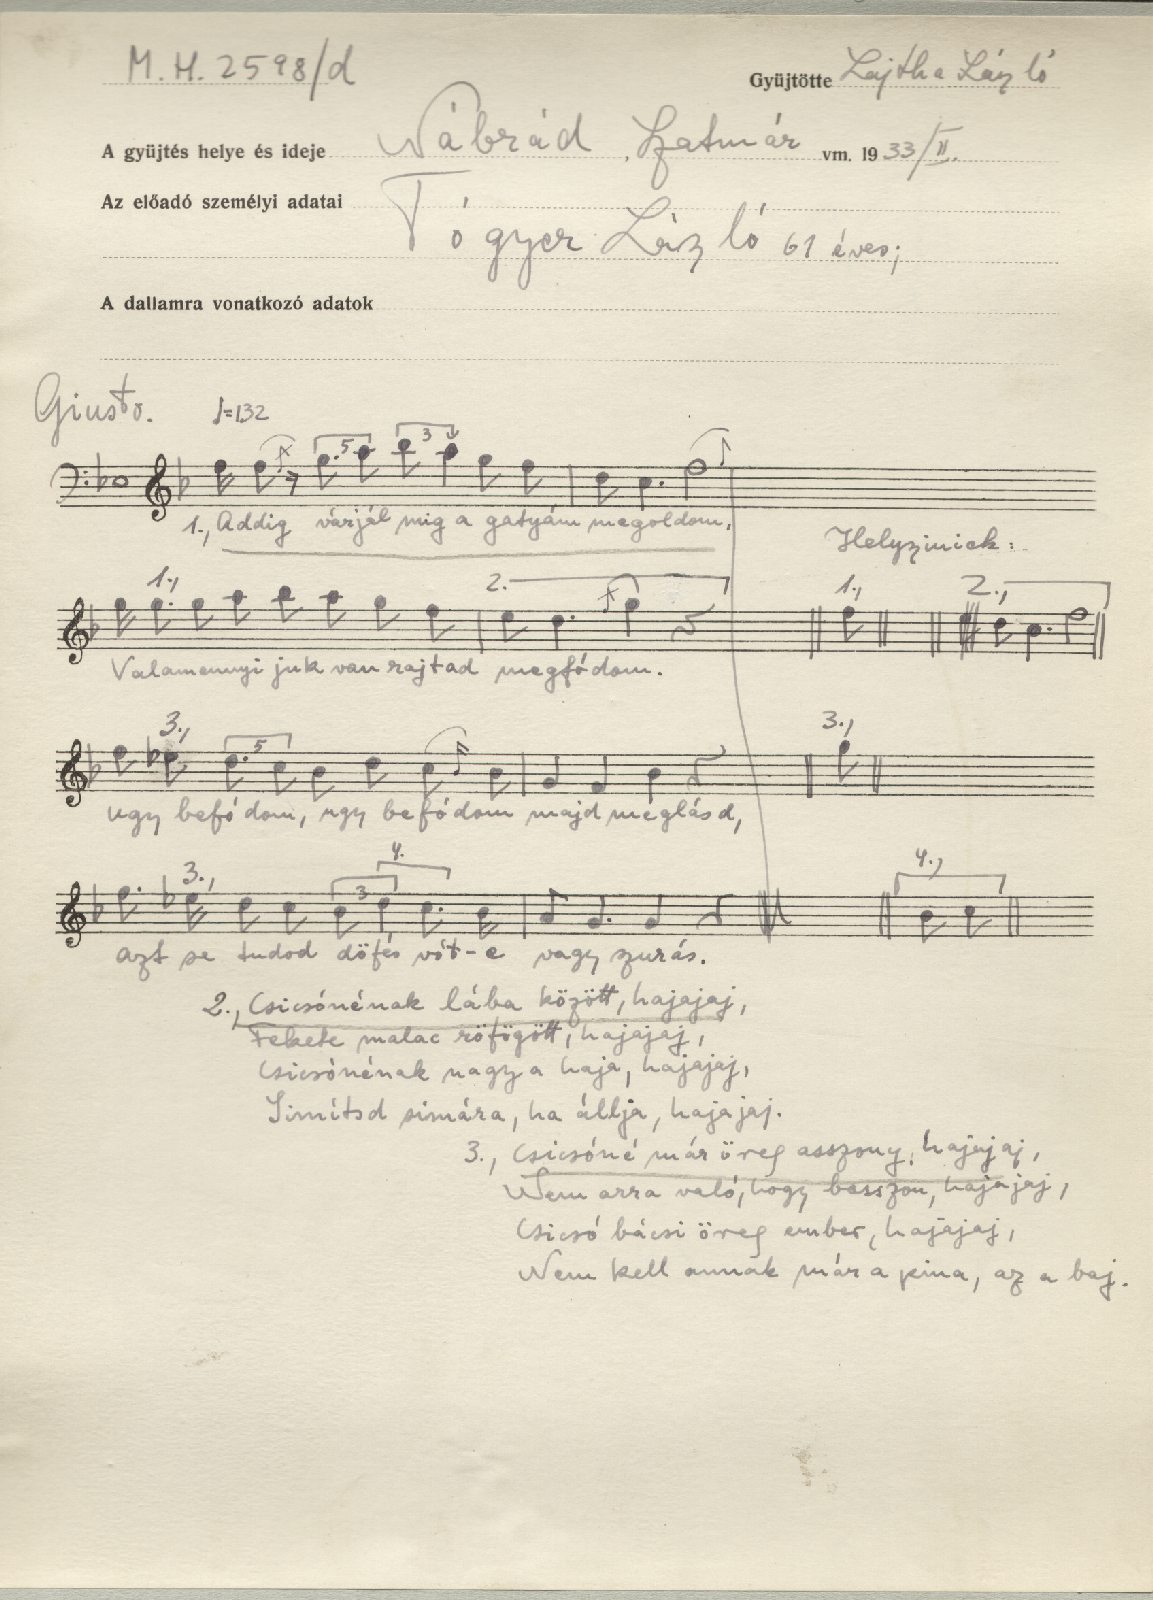 M.H. 2598/d
Gyüjtötte Lajtha László
A gyüjtés helye és ideje Nábrád, Szatmár vm. 1933/II.
Az előadó személyi adatai
Tógyer László 61 éves;
A dallamra vonatkozó adatok
Giusto. ♩=132
5 3
1., Addig várjál mig a gatyám megoldom,
Helyzinick:
1., 2. 1., 2.,
Valamennyi juk van rajtad megfódom.
3., 5 3.,
ugy befódom, ugy befódom majd meglásd,
3., 3 4. 4.,
azt se tudod döfés vót-e vagy zurás.
2., Csicsónénak lába között, hajajaj,
Fekete malac röfögött, hajajaj,
Csicsónénak nagy a haja, hajajaj,
Simítsd simára, ha állja, hajajaj.
3., Csicsóné már öreg asszony, hajajaj,
Nem arra való, hogy basszon, hajajaj,
Csicsó bácsi öreg ember, hajajaj,
Nem kell annak már a pina, az a baj.